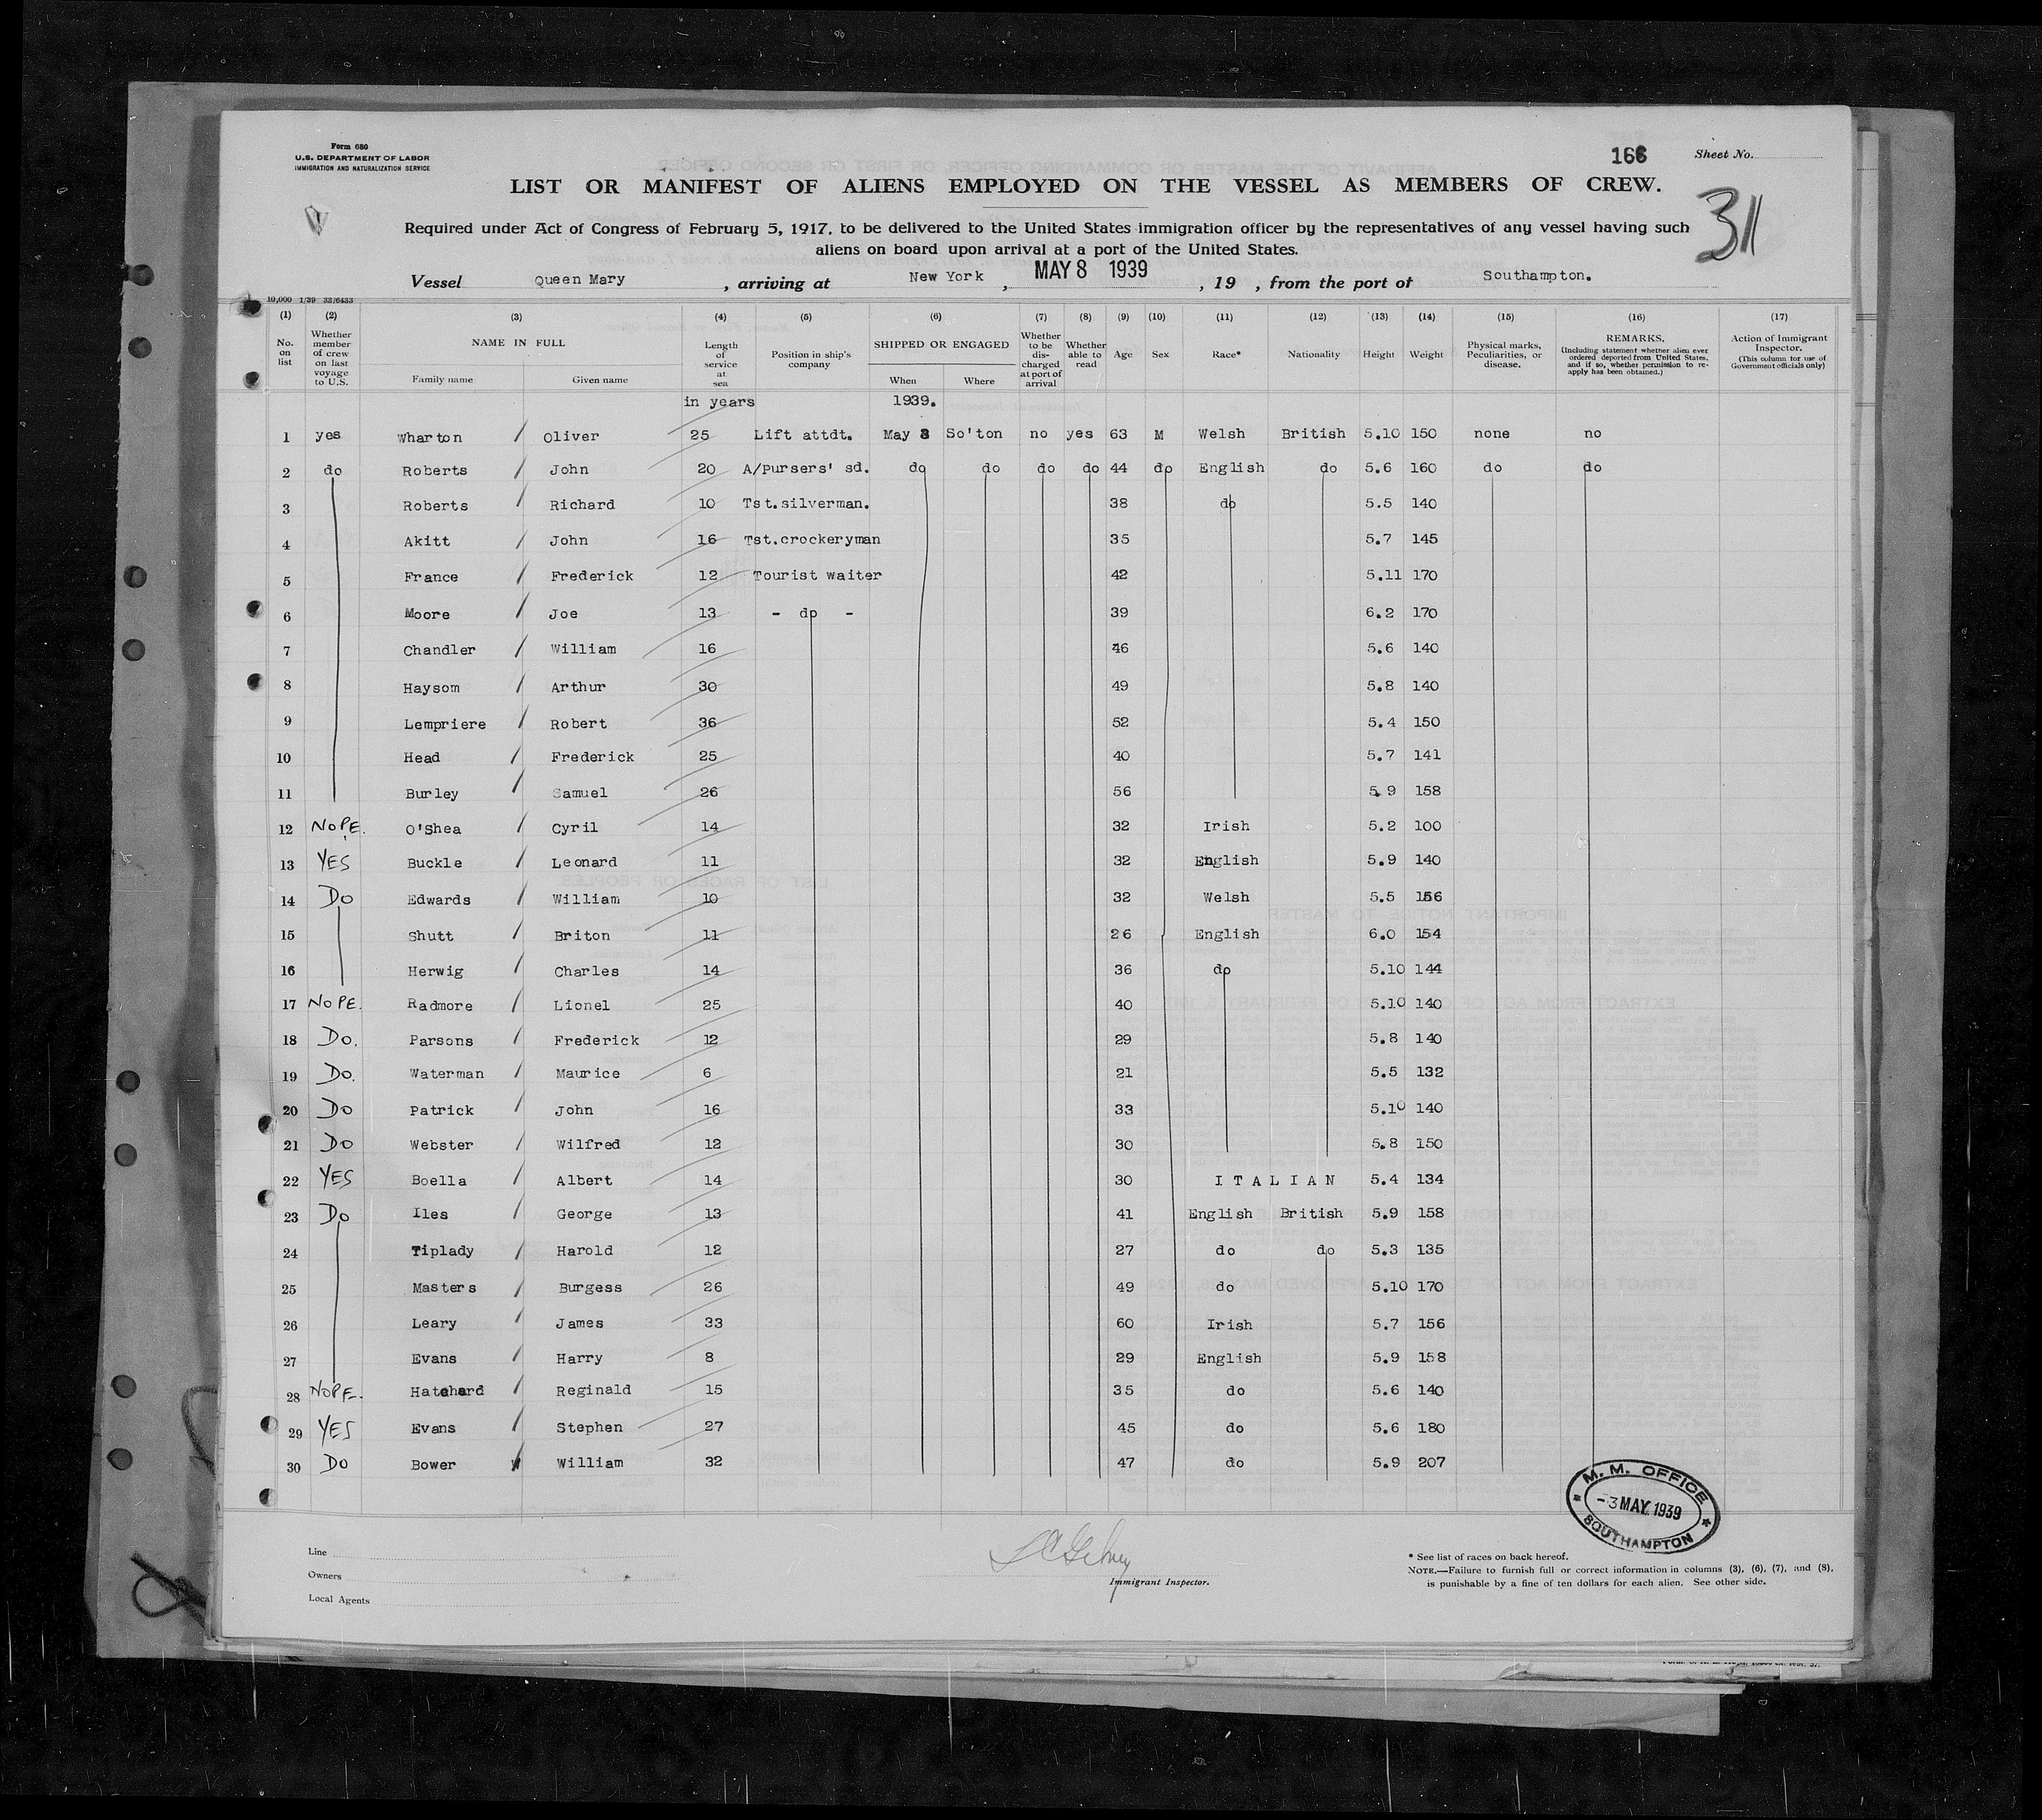 Form 680
U.S. DEPARTMENT OF LABOR
IMMIGRATION AND NATURALIZATION SERVICE
166 Sheet No.
LIST OR MANIFEST OF ALIENS EMPLOYED ON THE VESSEL AS MEMBERS OF CREW.
311
Required under Act of Congress of February 5, 1917, to be delivered to the United States immigration officer by the representatives of any vessel having such
aliens on board upon arrival at a port of the United States.
Vessel Queen Mary , arriving at New York , MAY 8 1939 , 19 , from the port of Southampton.
10,000 1/39 33/6433
(1) (2) (3) (4) (5) (6) (7) (8) (9) (10) (11) (12) (13) (14) (15) (16) (17)
No. on list
Whether member of crew on last voyage to U.S.
NAME IN FULL
Family name Given name
Length of service at sea
Position in ship's company
SHIPPED OR ENGAGED
When Where
Whether to be discharged at port of arrival
Whether able to read
Age Sex Race* Nationality Height Weight
Physical marks, Peculiarities, or disease.
REMARKS.
(Including statement whether alien ever ordered deported from United States, and if so, whether permission to re-apply has been obtained.)
Action of Immigrant Inspector.
(This column for use of Government officials only)
in years 1939.
1 yes Wharton / Oliver 25 Lift attdt. May 3 So'ton no yes 63 M Welsh British 5.10 150 none no
2 do Roberts / John 20 A/Pursers' sd. do do do do 44 do English do 5.6 160 do do
3 Roberts / Richard 10 Tst.silverman. 38 do 5.5 140
4 Akitt / John 16 Tst.crockeryman 35 5.7 145
5 France / Frederick 12 Tourist waiter 42 5.11 170
6 Moore / Joe 13 - do - 39 6.2 170
7 Chandler / William 16 46 5.6 140
8 Haysom / Arthur 30 49 5.8 140
9 Lempriere / Robert 36 52 5.4 150
10 Head / Frederick 25 40 5.7 141
11 Burley / Samuel 26 56 5.9 158
12 NOPE. O'Shea / Cyril 14 32 Irish 5.2 100
13 YES Buckle / Leonard 11 32 English 5.9 140
14 Do Edwards / William 10 32 Welsh 5.5 156
15 Shutt / Briton 11 26 English 6.0 154
16 Herwig / Charles 14 36 do 5.10 144
17 NOPE. Radmore / Lionel 25 40 5.10 140
18 Do. Parsons / Frederick 12 29 5.8 140
19 Do. Waterman / Maurice 6 21 5.5 132
20 Do Patrick / John 16 33 5.10 140
21 Do Webster / Wilfred 12 30 5.8 150
22 YES Boella / Albert 14 30 ITALIAN 5.4 134
23 Do Iles / George 13 41 English British 5.9 158
24 Tiplady / Harold 12 27 do do 5.3 135
25 Masters / Burgess 26 49 do 5.10 170
26 Leary / James 33 60 Irish 5.7 156
27 Evans / Harry 8 29 English 5.9 158
28 NOPE. Hatchard / Reginald 15 35 do 5.6 140
29 YES Evans / Stephen 27 45 do 5.6 180
30 Do Bower / William 32 47 do 5.9 207
M. M. OFFICE
-3 MAY 1939
SOUTHAMPTON
Line
Owners
Local Agents
Immigrant Inspector.
* See list of races on back hereof.
NOTE.—Failure to furnish full or correct information in columns (3), (6), (7), and (8),
is punishable by a fine of ten dollars for each alien. See other side.